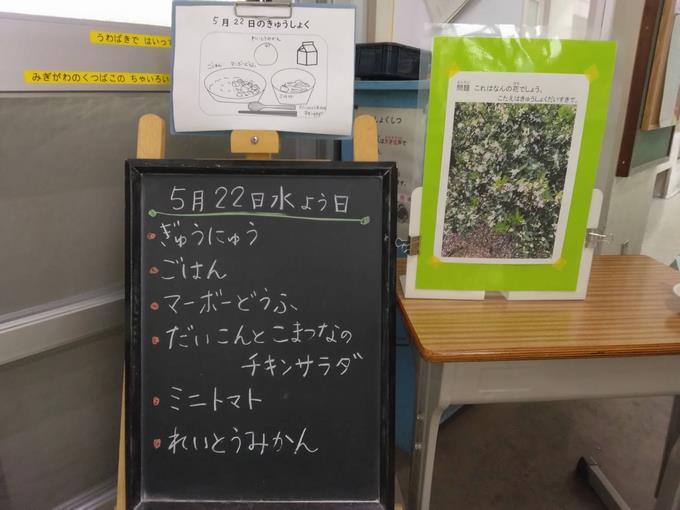 うわばきで はいっ
みぎがわのくつばこの ちゃいろい
5月22日のきゅうしょく
れいとうみかん
ごはん
マーボーどうふ
問題 これはなんの花でしょう。
こたえはきゅうしょくだいすきで。
5月22日水よう日
ぎゅうにゅう
ごはん
マーボーどうふ
だいこんとこまつなの
チキンサラダ
ミニトマト
れいとうみかん